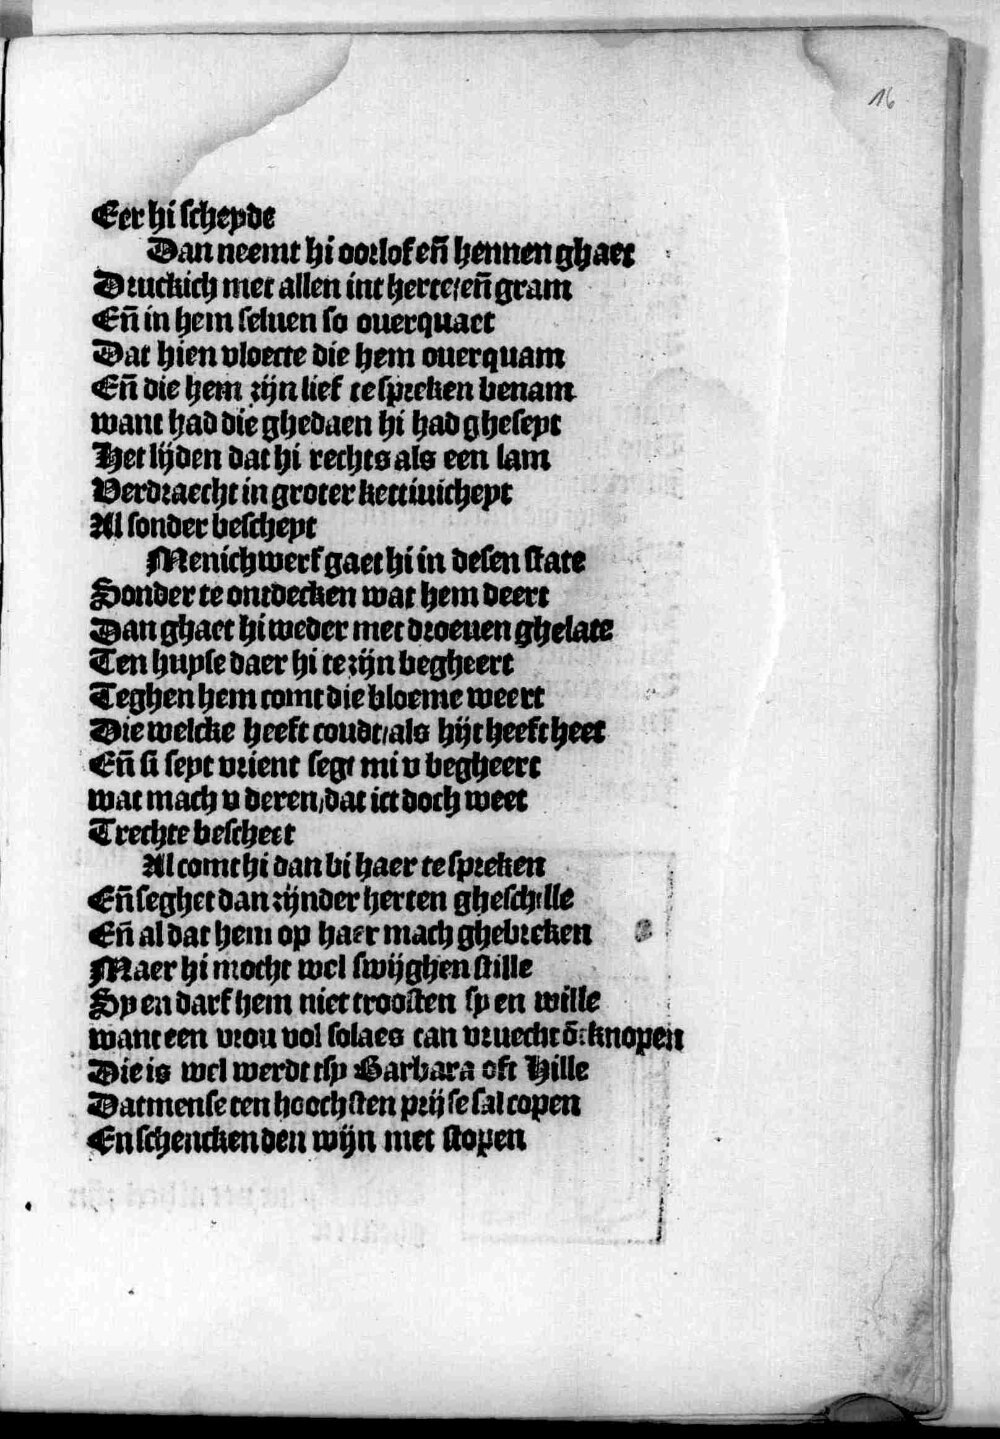 16
Eer hi scheyde
Dan neemt hi oorlof eñ hennen ghaet
Druckich met allen int herte/eñ gram
Eñ in hem seluen so ouerquaet
Dat hien vloecte die hem ouerquam
Eñ die hem zijn lief te spreken benam
want had die ghedaen hi had gheseyt
Het lijden dat hi rechts als een lam
Verdraecht in groter kettiuicheyt
Al sonder bescheyt
Menichwerf gaet hi in desen state
Sonder te ontdecken wat hem deert
Dan ghaet hi weder met droeuen ghelate
Ten huyse daer hi te zijn begheert
Teghen hem comt die bloeme weert
Die welcke heeft coudt/als hijt heeft heet
Eñ si seyt vrient segt mi v begheert
wat mach v deren/dat ict doch weet
Trechte bescheet
Al comt hi dan bi haer te spreken
Eñ seghet dan zijnder herten gheschille
Eñ al dat hem op haer mach ghebreken
Maer hi mocht wel swijghen stille
Sy en darf hem niet troosten sy en wille
want een vrou vol solaes can vruecht knopen
Die is wel werdt tsy Barbara oft Hille
Datmense ten hoochsten prijse sal copen
En schencken den wijn met stopen